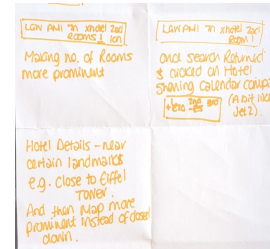 LGW AMI 7n xhotel 2ad
Rooms! 1ch
Making no. of Rooms
more prominent
LGW AMI 7n xhotel 2ad
Room!
once search Returned
& clicked on Hotel
showing calendar
(A bit like
Jet2).
Hotel Details - near
certain landmarks
e.g. close to Eiffel
Tower.
And then Map more
prominent instead of closed
down.